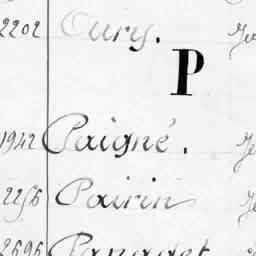 2202 Oury.
P
1942 Paigné.
2256 Pairin
2696 Panadet